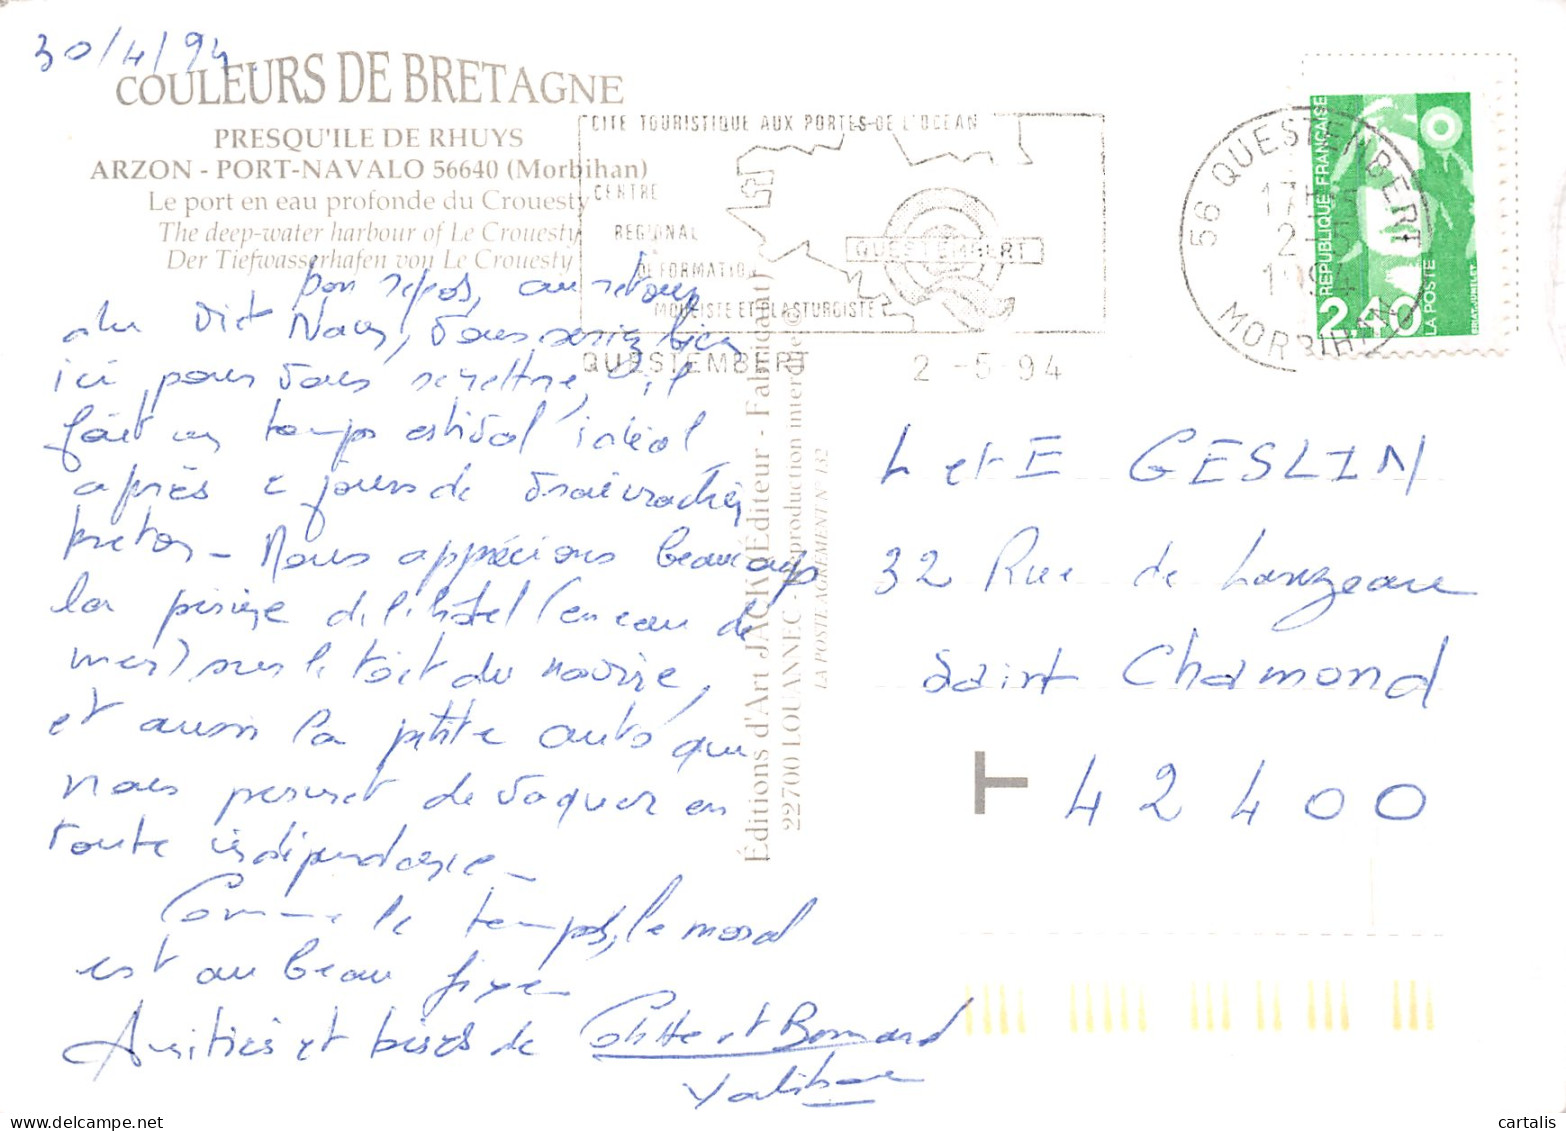 30/4/94
COULEURS DE BRETAGNE
PRESQU'ILE DE RHUYS
ARZON - PORT-NAVALO 56640 (Morbihan)
Le port en eau profonde du Crouesty
The deep-water harbour of Le Crouesty
Der Tiefwasserhafen von Le Crouesty
bon repos, au retour
du Viet Nam, vous seriez bien
ici pour vous remettre, il
fait un temps estival idéal
après 2 jours de vrai crachin
breton - Nous apprécions beaucoup
la piscine de l'hôtel (en eau de
mer) sur le toit du navire,
et aussi la petite auto qui
nous permet de vaquer en
toute indépendance -
Comme le temps, le moral
est au beau fixe
Amitiés et bises de Colette et Bernard
CITE TOURISTIQUE AUX PORTES DE L'OCEAN
CENTRE
REGIONAL
DE FORMATION
MOULISTE ET PLASTURGISTE
QUESTEMBERT
QUESTEMBERT 2 -5 -94
56 QUESTEMBERT
17H
2-5
1994
MORBIHAN
REPUBLIQUE FRANÇAISE
2,40
LA POSTE
Éditions d'Art JACK (Éditeur - Fabricant)
22700 LOUANNEC - Reproduction interdite ©
LA POSTE AGRÉMENT N° 152
L et E GESLIN
32 Rue de Lanzeau
Saint Chamond
T 42400
cartalis